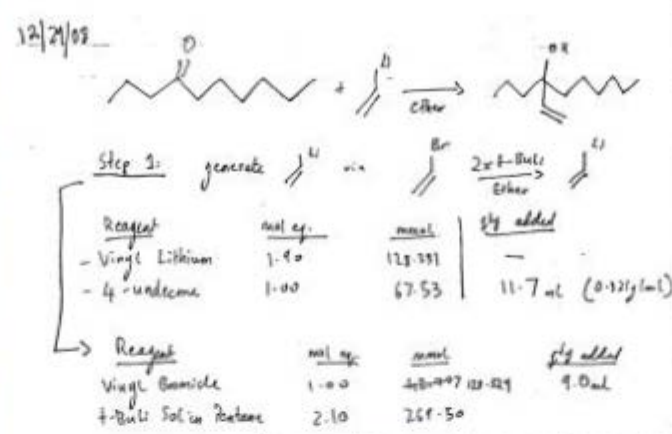 12/29/08
O OH
Li
+ Ether
Step 1: generate Li via Br 2x t-BuLi Li
Ether
Reagent mol eq. mmol qty added
- Vinyl Lithium 1.90 —
- 4-undecone 1.00 67.53 11.7 mL
Reagent mol eq. mmol qty added
Vinyl Bromide 1.00 9.0 mL
t-BuLi Sol in Pentane 2.10 269.50